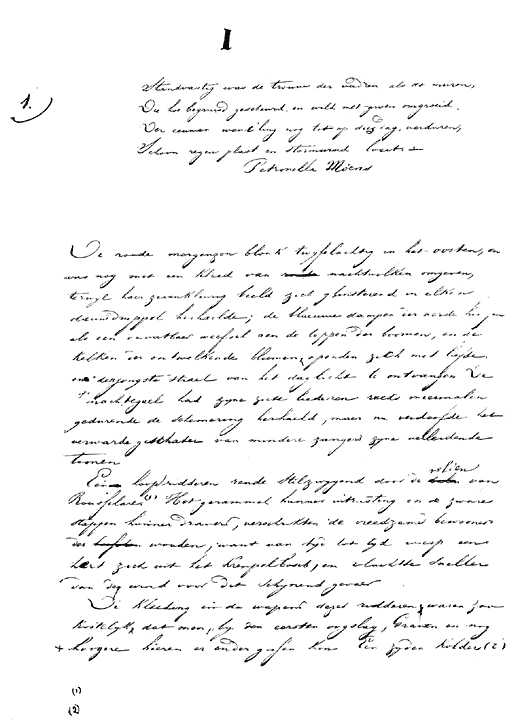 I
1.
Standvastig was de trouwe der vadren als de muren,
Die hoe begruisd gescheurd, en wild met groen omgroeid,
Der eeuwen wentling nog tot op dezen dag, verduren,
Schoon regen plast en stormwind loeit
Petronella Moens
De roode morgenzon blonk twyfelachtig in het oosten, en
was nog met een kleed van nachtwolken omgeven,
terwyl haer beeld zich glinsterend in elken
dauwdruppel herhaelde; de blauwe dampen der aerde
als een weefsel aen de toppen der boomen, en de
kelken der ontwakende bloemen openden zich met liefde
om de jongste strael van het daglicht te ontvangen. De
nachtegael had zyne zoete liederen reeds meermalen
gedurende de schemering herhaeld, maer nu verdoofde het
verwarde geschater van mindere zangers zyne verleidende
toonen
Een ridderen reade stilzwygend door de velden van
Rousselaere (1) Het gerammel hunner uitrusting en de zware
stappen hunner dravers, verschrikten de vreedzame bewooners
der wouden; want van tyd tot tyd wierp een
hert zich uit het kreupelbosch, en vluchtte sneller
van wind voor dit schynend gevaer
De kleeding en de wapens dezer ridderen waren zoo
kostelyk, dat men, by den eersten oogslag, Graven en nog
+ hoogere heeren er onder Een zyden kolder (2)
(1)
(2)